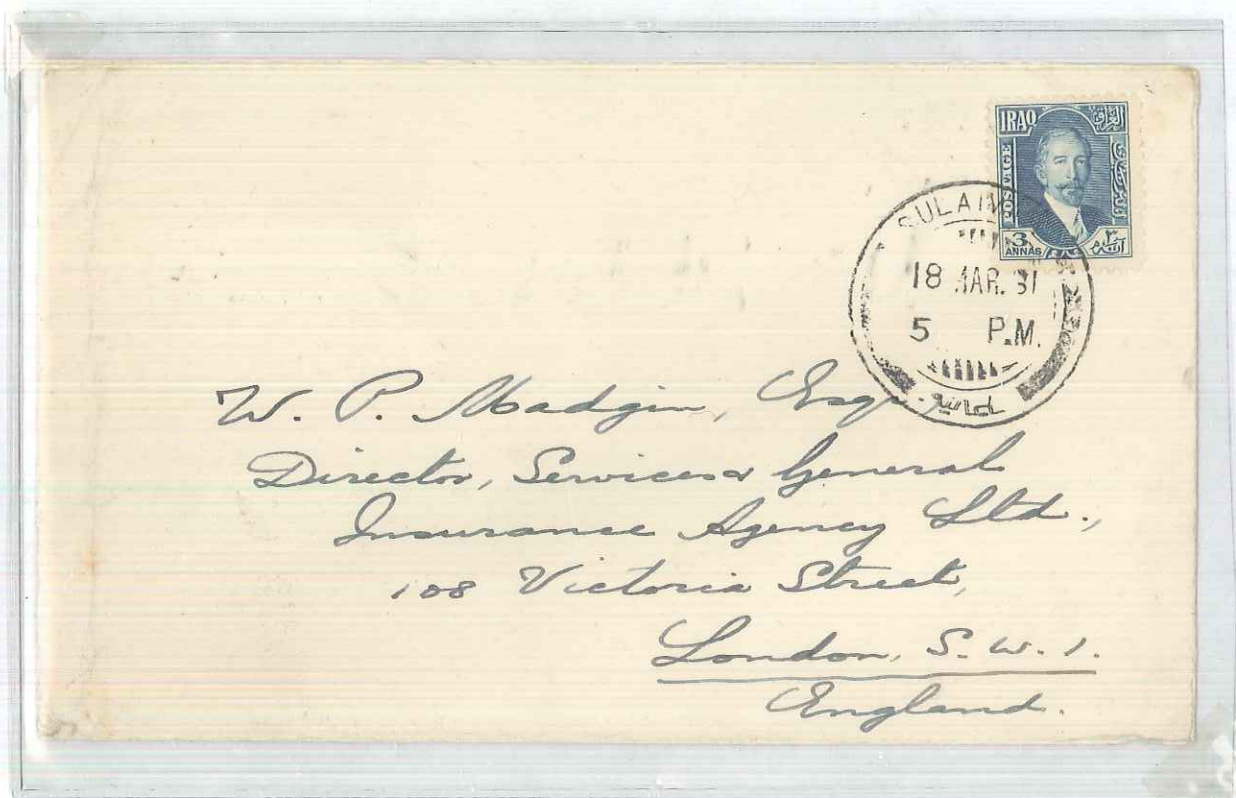 IRAQ العراق
POSTAGE
3 ٣
ANNAS
SULAIM
18 MAR. 31
5 P.M.
سليمانية
W. P. Madgin, Esq
Director, Services & General
Insurance Agency Ltd.,
108 Victoria Street,
London, S.W.1.
England.